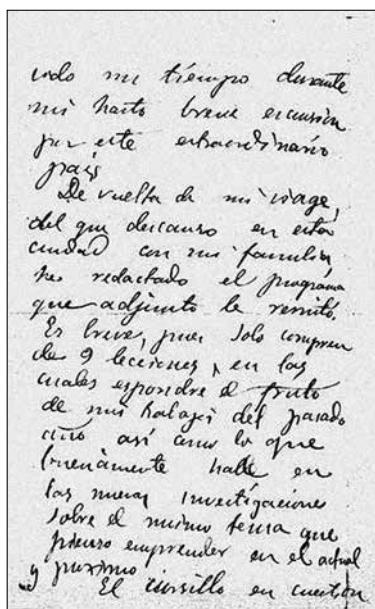 todo mi tiempo durante
mi harto breve excursión
por este extraordinario
país
De vuelta de mi viage,
del que descanso en esta
ciudad con mi familia
he redactado el programa
que adjunto le remito.
Es breve, pues solo compren
de 9 lecciones, en las
cuales espondre el fruto
de mis trabajos del pasado
año así como lo que
buenamente halle en
las nuevas investigaciones
sobre el mismo tema que
pienso emprender en el actual
y proximo
El cursillo en cuestión